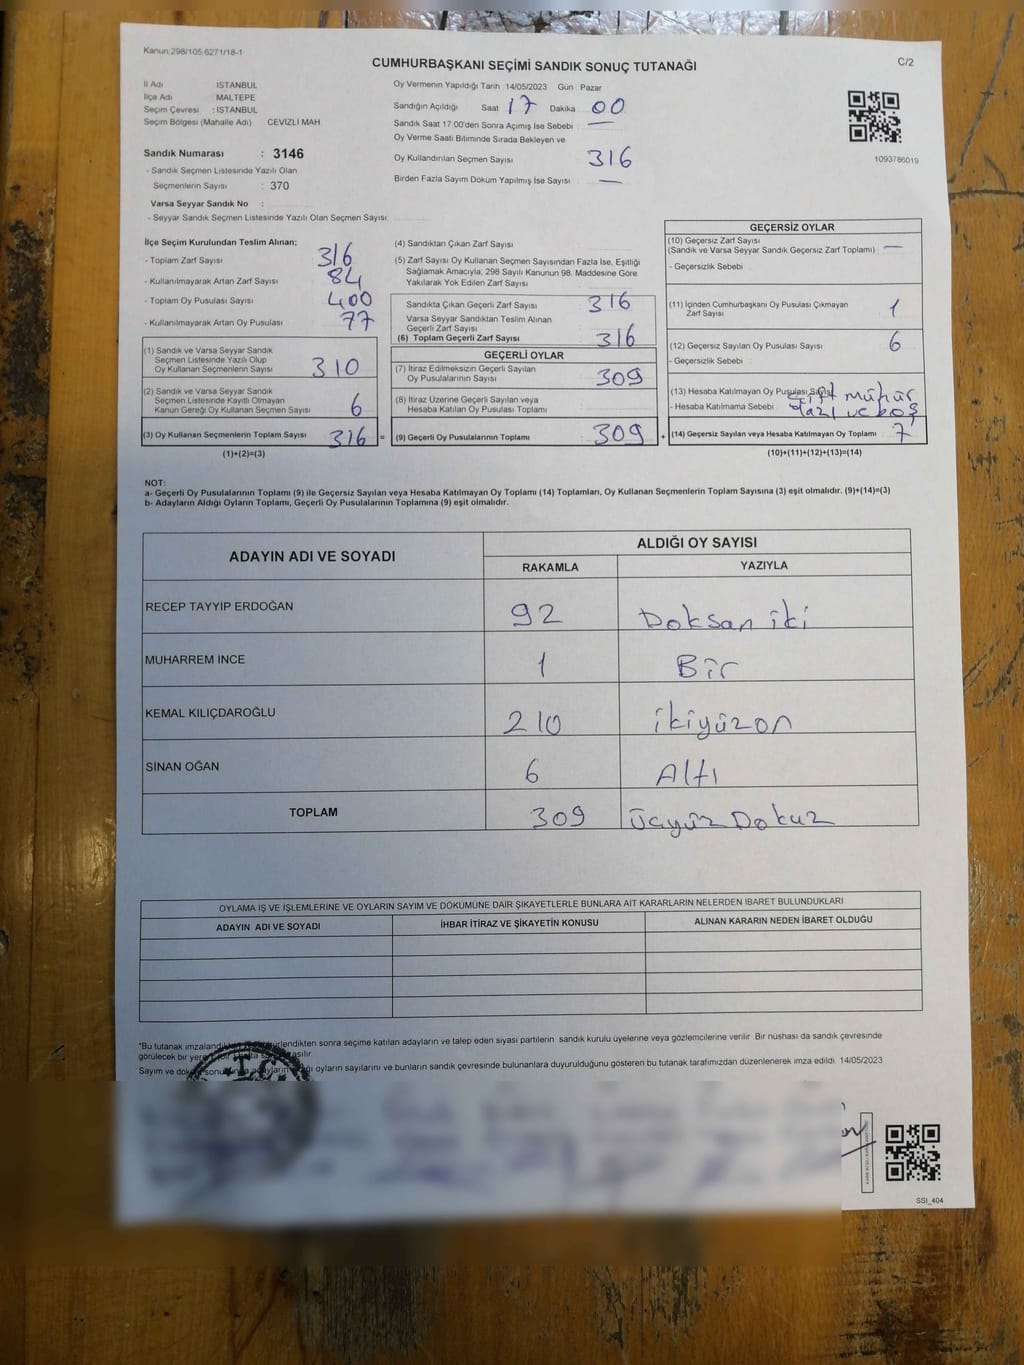 Kanun.298/105,6271/18-1
CUMHURBAŞKANI SEÇİMİ SANDIK SONUÇ TUTANAĞI
C/2
İl Adı İSTANBUL
İlçe Adı MALTEPE
Seçim Çevresi : İSTANBUL
Seçim Bölgesi (Mahalle Adı) CEVİZLİ MAH
Sandık Numarası : 3146
- Sandık Seçmen Listesinde Yazılı Olan
Seçmenlerin Sayısı : 370
Varsa Seyyar Sandık No :
- Seyyar Sandık Seçmen Listesinde Yazılı Olan Seçmen Sayısı
Oy Vermenin Yapıldığı Tarih 14/05/2023 Gün : Pazar
Sandığın Açıldığı Saat 17 Dakika 00
Sandık Saat 17:00'den Sonra Açımış İse Sebebi —
Oy Verme Saati Bitiminde Sırada Bekleyen ve
Oy Kullandırılan Seçmen Sayısı 316
Birden Fazla Sayım Döküm Yapılmış İse Sayısı —
1093786019
İlçe Seçim Kurulundan Teslim Alınan;
- Toplam Zarf Sayısı 316
- Kullanılmayarak Artan Zarf Sayısı 84
- Toplam Oy Pusulası Sayısı 400
- Kullanılmayarak Artan Oy Pusulası 77
(1) Sandık ve Varsa Seyyar Sandık
Seçmen Listesinde Yazılı Olup
Oy Kullanan Seçmenlerin Sayısı 310
(2) Sandık ve Varsa Seyyar Sandık
Seçmen Listesinde Kayıtlı Olmayan
Kanun Gereği Oy Kullanan Seçmen Sayısı 6
(3) Oy Kullanan Seçmenlerin Toplam Sayısı 316 =
(1)+(2)=(3)
(4) Sandıktan Çıkan Zarf Sayısı
(5) Zarf Sayısı Oy Kullanan Seçmen Sayısından Fazla İse, Eşitliği
Sağlamak Amacıyla, 298 Sayılı Kanunun 98. Maddesine Göre
Yakılarak Yok Edilen Zarf Sayısı
Sandıkta Çıkan Geçerli Zarf Sayısı 316
Varsa Seyyar Sandıktan Teslim Alınan
Geçerli Zarf Sayısı
(6) Toplam Geçerli Zarf Sayısı 316
GEÇERLİ OYLAR
(7) İtiraz Edilmeksizin Geçerli Sayılan
Oy Pusulalarının Sayısı 309
(8) İtiraz Üzerine Geçerli Sayılan veya
Hesaba Katılan Oy Pusulası Toplamı
(9) Geçerli Oy Pusulalarının Toplamı 309 +
GEÇERSİZ OYLAR
(10) Geçersiz Zarf Sayısı
(Sandık ve Varsa Seyyar Sandık Geçersiz Zarf Toplamı) —
- Geçersizlik Sebebi
(11) İçinden Cumhurbaşkanı Oy Pusulası Çıkmayan
Zarf Sayısı 1
(12) Geçersiz Sayılan Oy Pusulası Sayısı 6
- Geçersizlik Sebebi
(13) Hesaba Katılmayan Oy Pusulası Sayısı
- Hesaba Katılmama Sebebi
Çift mühür
Yazı ve boş
(14) Geçersiz Sayılan veya Hesaba Katılmayan Oy Toplamı 7
(10)+(11)+(12)+(13)=(14)
NOT:
a- Geçerli Oy Pusulalarının Toplamı (9) ile Geçersiz Sayılan veya Hesaba Katılmayan Oy Toplamı (14) Toplamları, Oy Kullanan Seçmenlerin Toplam Sayısına (3) eşit olmalıdır. (9)+(14)=(3)
b- Adayların Aldığı Oyların Toplamı, Geçerli Oy Pusulalarının Toplamına (9) eşit olmalıdır.
ADAYIN ADI VE SOYADI
ALDIĞI OY SAYISI
RAKAMLA YAZIYLA
RECEP TAYYİP ERDOĞAN 92 Doksan iki
MUHARREM İNCE 1 Bir
KEMAL KILIÇDAROĞLU 210 ikiyüzon
SİNAN OĞAN 6 Altı
TOPLAM 309 Üçyüz Dokuz
OYLAMA İŞ VE İŞLEMLERİNE VE OYLARIN SAYIM VE DÖKÜMÜNE DAİR ŞİKAYETLERLE BUNLARA AİT KARARLARIN NELERDEN İBARET BULUNDUKLARI
ADAYIN ADI VE SOYADI İHBAR İTİRAZ VE ŞİKAYETİN KONUSU ALINAN KARARIN NEDEN İBARET OLDUĞU
*Bu tutanak imzalandıktan sonra seçime katılan adayların ve talep eden siyasi partilerin sandık kurulu üyelerine veya gözlemcilerine verilir. Bir nüshası da sandık çevresinde
görülecek bir yere asılır
Sayım ve oyların sayılarını ve bunların sandık çevresinde bulunanlara duyurulduğunu gösteren bu tutanak tarafımızdan düzenlenerek imza edildi. 14/05/2023
SSI_404